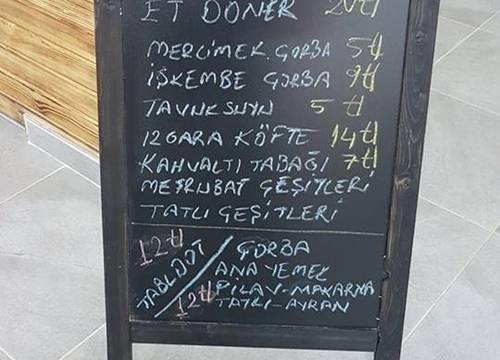 ET DÖNER 20 tl
MERCİMEK ÇORBA 5 tl
İŞKEMBE ÇORBA 9 tl
TAVUK SUYU 5 tl
IZGARA KÖFTE 14 tl
KAHVALTI TABAĞI 7 tl
MEŞRUBAT ÇEŞİTLERİ
TATLI ÇEŞİTLERİ
12 tl TABLDOT 12 tl
ÇORBA
ANA YEMEK
PİLAV-MAKARNA
TATLI-AYRAN